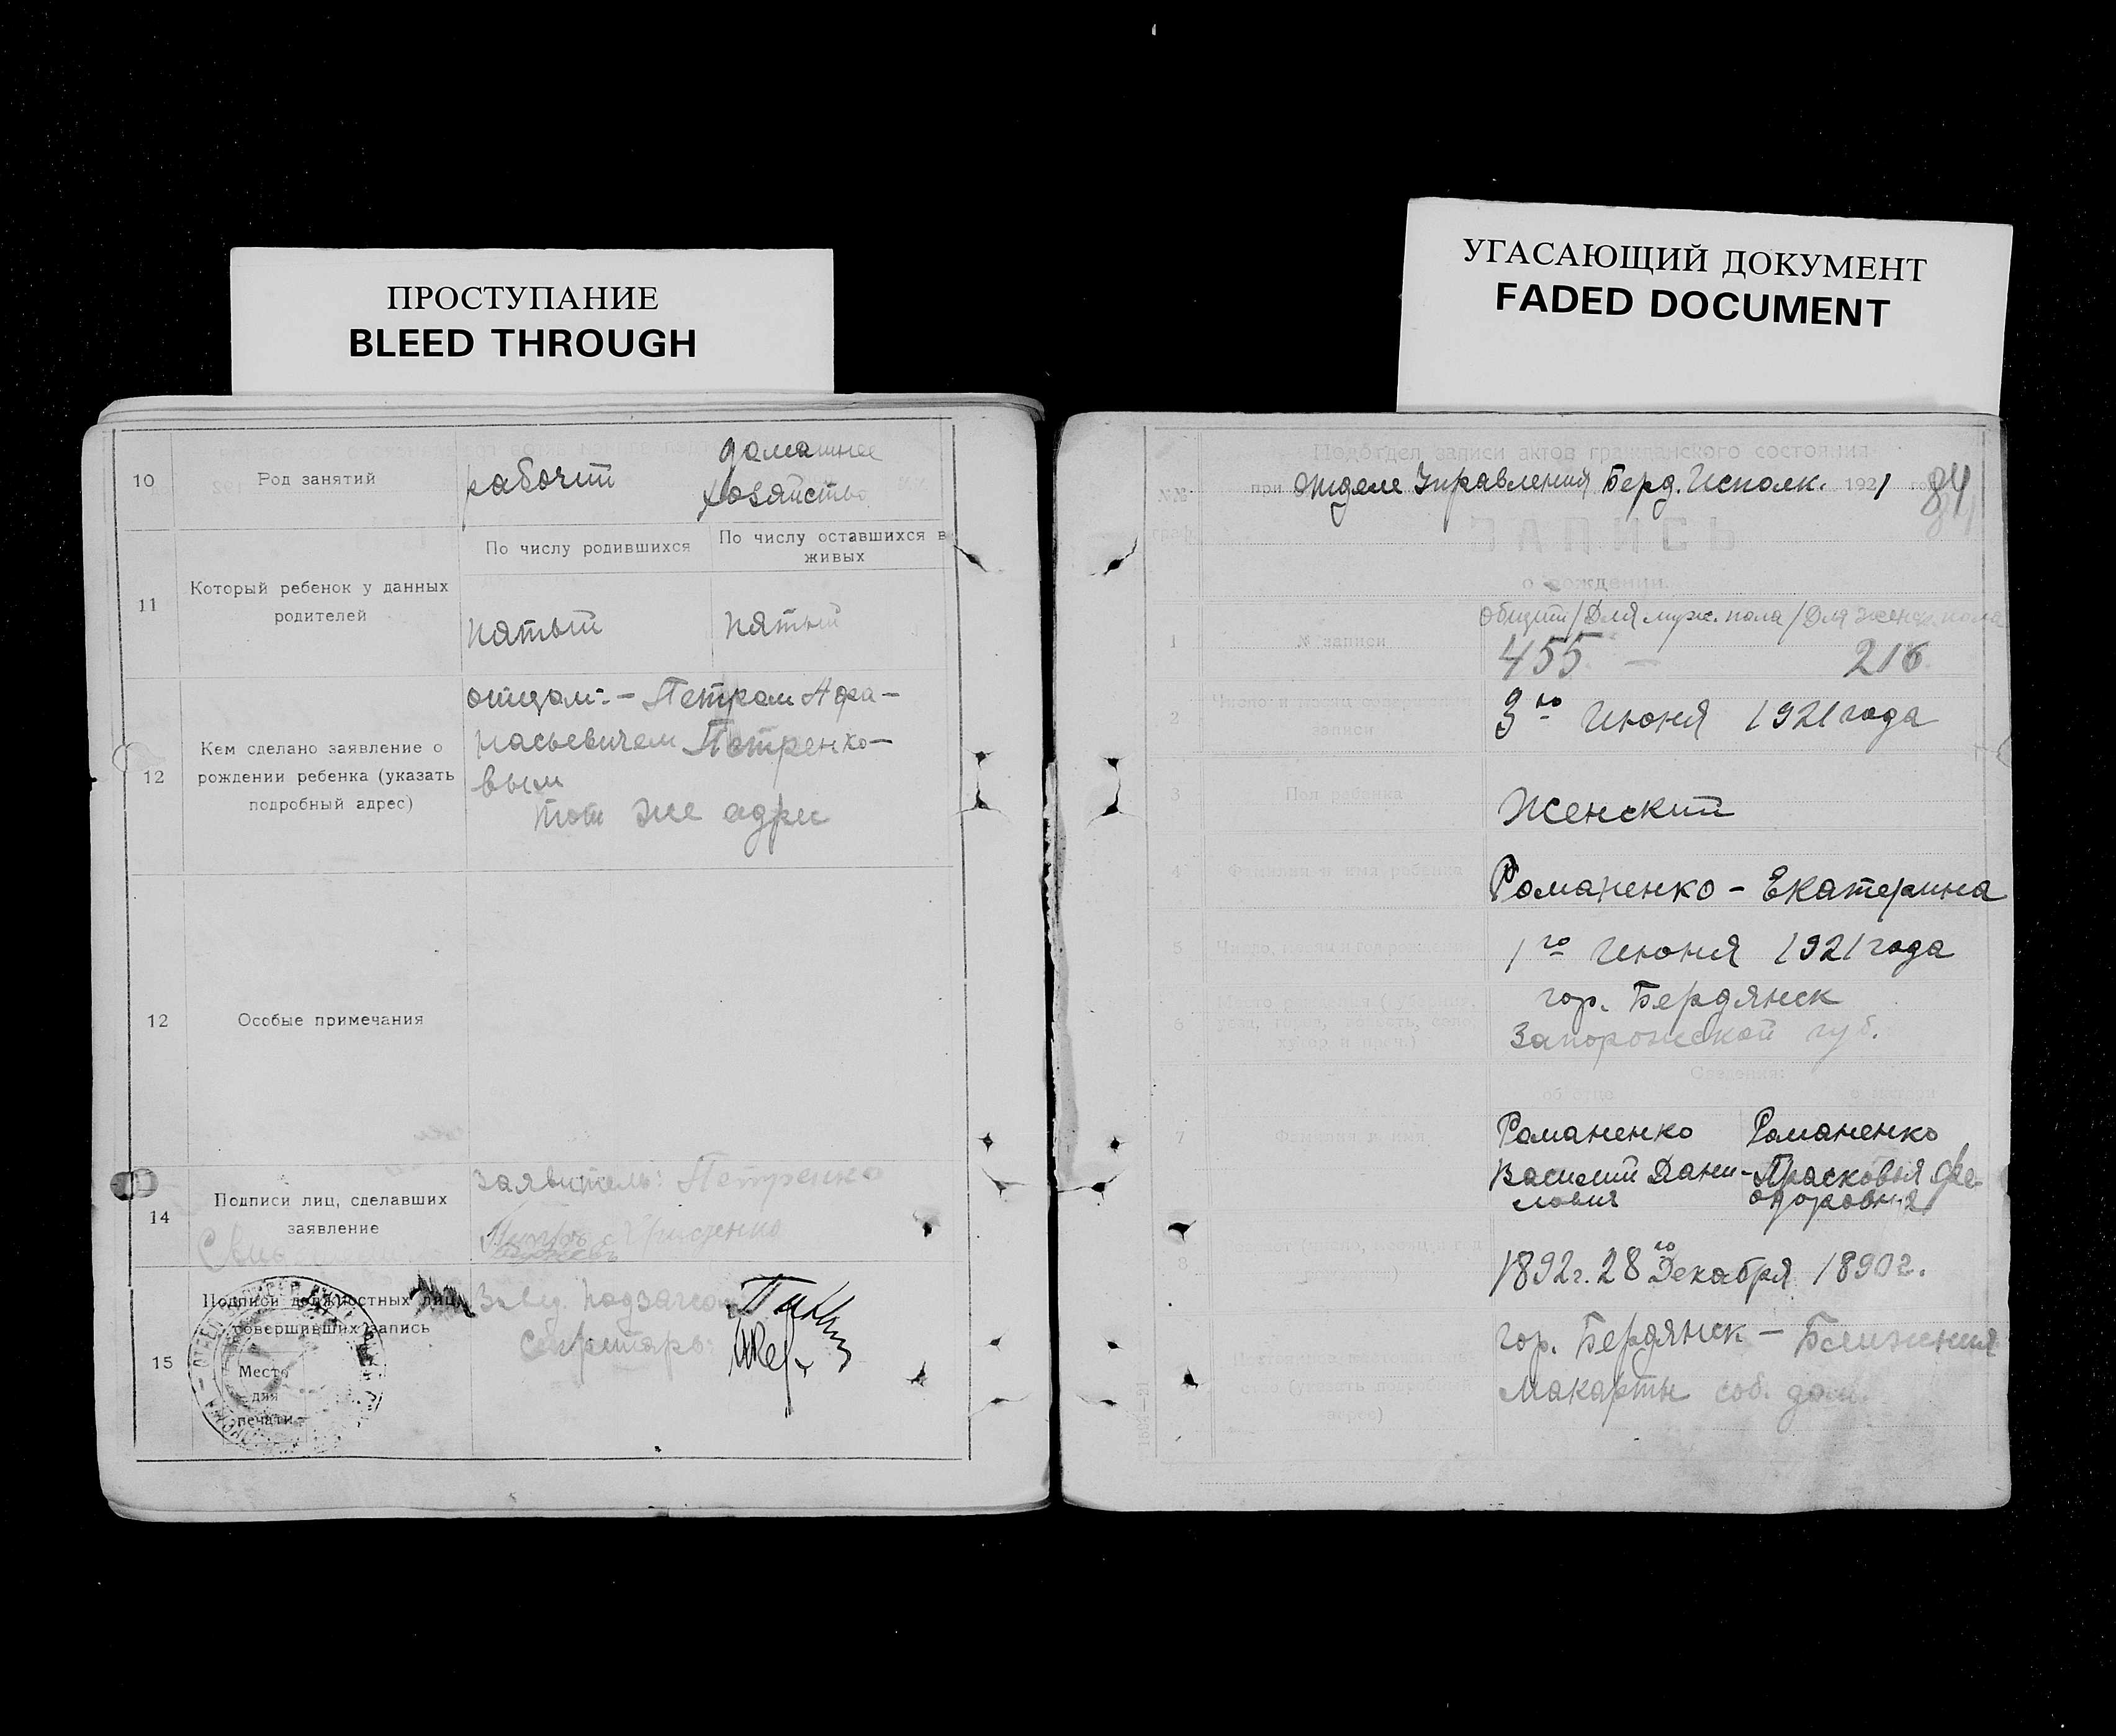 ПРОСТУПАНИЕ
BLEED THROUGH
10
Род занятий
рабочий
домашнее
хозяйство
11
Который ребенок у данных
родителей
По числу родившихся
По числу оставшихся в
живых
пятый
пятый
12
Кем сделано заявление о
рождении ребенка (указать
подробный адрес)
отцом:- Петром Афа-
насьевичем Петренко-
вым
тот же адрес
12
Особые примечания
14
Подписи лиц, сделавших
заявление
заявитель: Петренко
15
Подписи должностных лиц,
совершивших запись
Место
для
печати
Завед. подзагсом
Секретарь:
УГАСАЮЩИЙ ДОКУМЕНТ
FADED DOCUMENT
Подотдел записи актов гражданского состояния
№№
при Отделе Управления Берд. Исполк. 1921
84
ЗАПИСЬ
о рождении.
Общий/Для муж. пола/Для женск. пола
1
№ записи
455 — 216
2
Число и месяц совершения
записи
3го Июня 1921 года
3
Пол ребенка
Женский
4
Фамилия и имя ребенка
Романенко - Екатерина
5
Число, месяц и год рождения
1го Июня 1921 года
6
хутор и проч.)
гор. Бердянск
Запорожской губ.
Сведения:
об отце
о матери
7
Фамилия и имя
Романенко
Романенко
Василий Дани-
лович
Прасковья Фе-
одоровна
8
1892г. 28го Декабря 1890г.
адрес)
гор. Бердянск - Ближния
Макорты соб. дом.